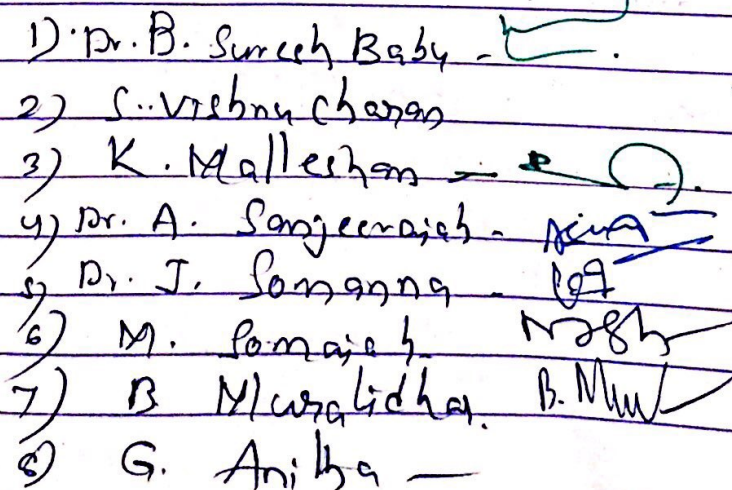 1) Dr. B. Suresh Babu -
2) S. Vishnu Charan
3) K. Mallesham -
4) Dr. A. Sanjeevaiah -
5) Dr. J. Somanna -
6) M. Somaiah
7) B Muralidhar. B. Mu
8) G. Anitha -